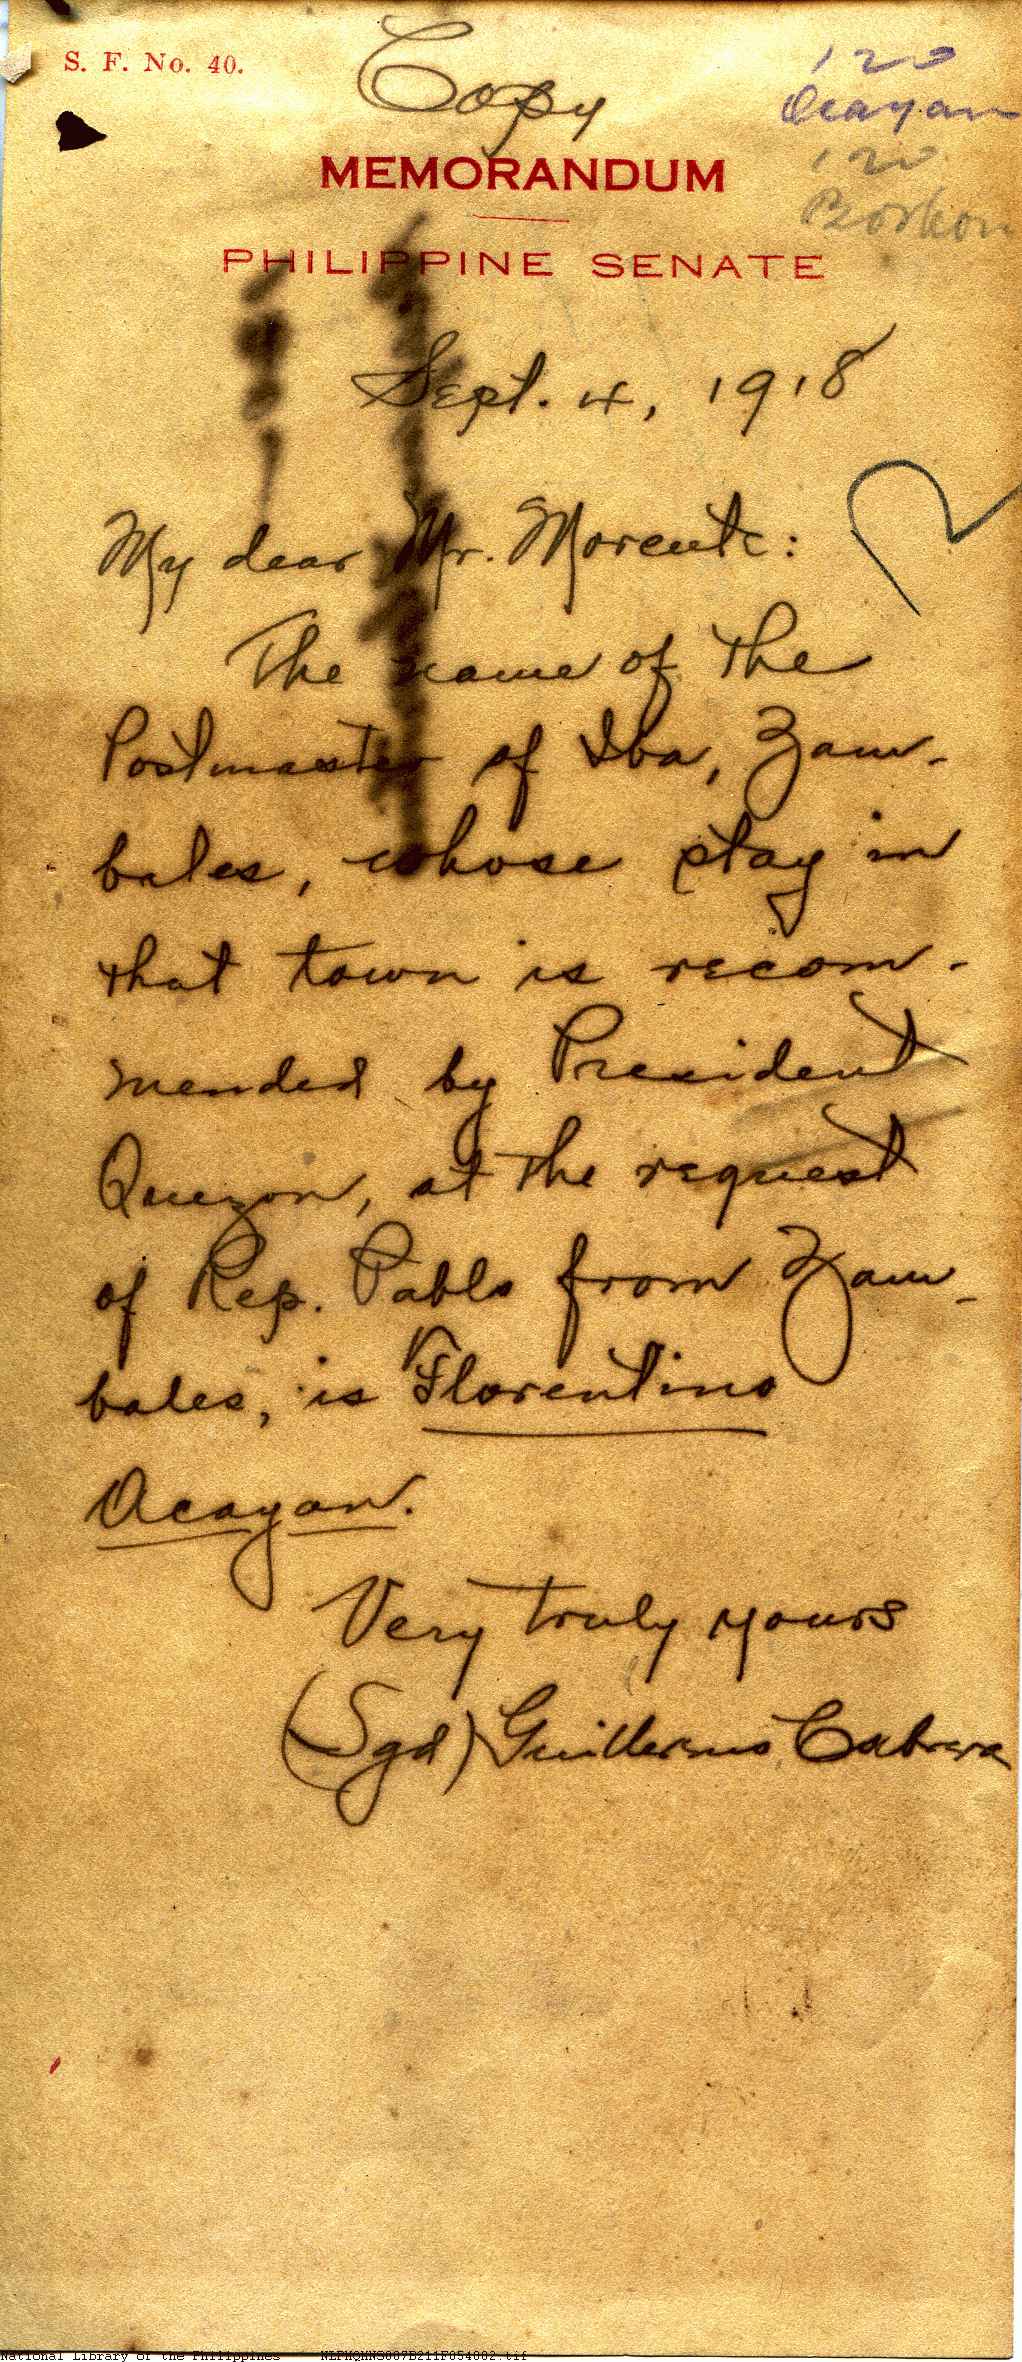 S. F. No. 40.
Copy
120
Ocayan
120
MEMORANDUM
PHILIPPINE SENATE
Sept. 4, 1918
My dear Mr. Morente:
The name of the
Postmaster of Iba, Zam-
bales, whose stay in
that town is recom-
mended by President
Quezon, at the request
of Rep. Pablo from Zam-
bales, is Florentino
Ocayan.
Very truly yours
(Sgd) Guillermo Cabrera
National Library of the Philippines